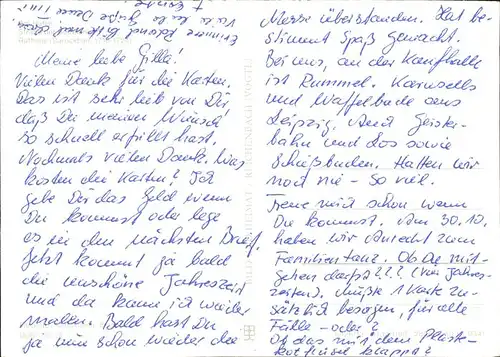 Meine liebe Gilla!
Vielen Dank für die Karten.
Das ist sehr lieb von Dir,
daß Du meinen Wunsch
so schnell erfüllt hast.
Nochmals vielen Dank. Was
kosten die Karten? Ich
gebe Dir das Geld wenn
Du kommst oder lege
es in den nächsten Brief.
Jetzt kommt ja bald
die unschöne Jahreszeit
und da kann ich wieder
malen. Bald hast Du
ja nun schon wieder die
Messe überstanden. Hat be-
stimmt Spaß gemacht.
Bei uns, an der Kaufhalle
ist Rummel. Karussells
und Waffelbude aus
Leipzig. Auch Geister-
bahn und das sowie
Schießbuden. Hatten wir
noch nie - So viel.
Freue mich schon wenn
Du kommst. Am 30.10.
haben wir Anrecht zum
Familientanz. Ob Du mit-
gehen darfst??? (von Jahres-
zeiten). Müßte 1 Karte zu-
sätzlich besorgen, für alle
Fälle - oder?
Ob das mit dem
klappt?